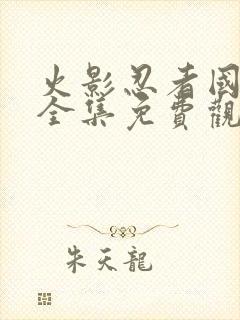 火影忍者國
全集免費觀
朱天龍